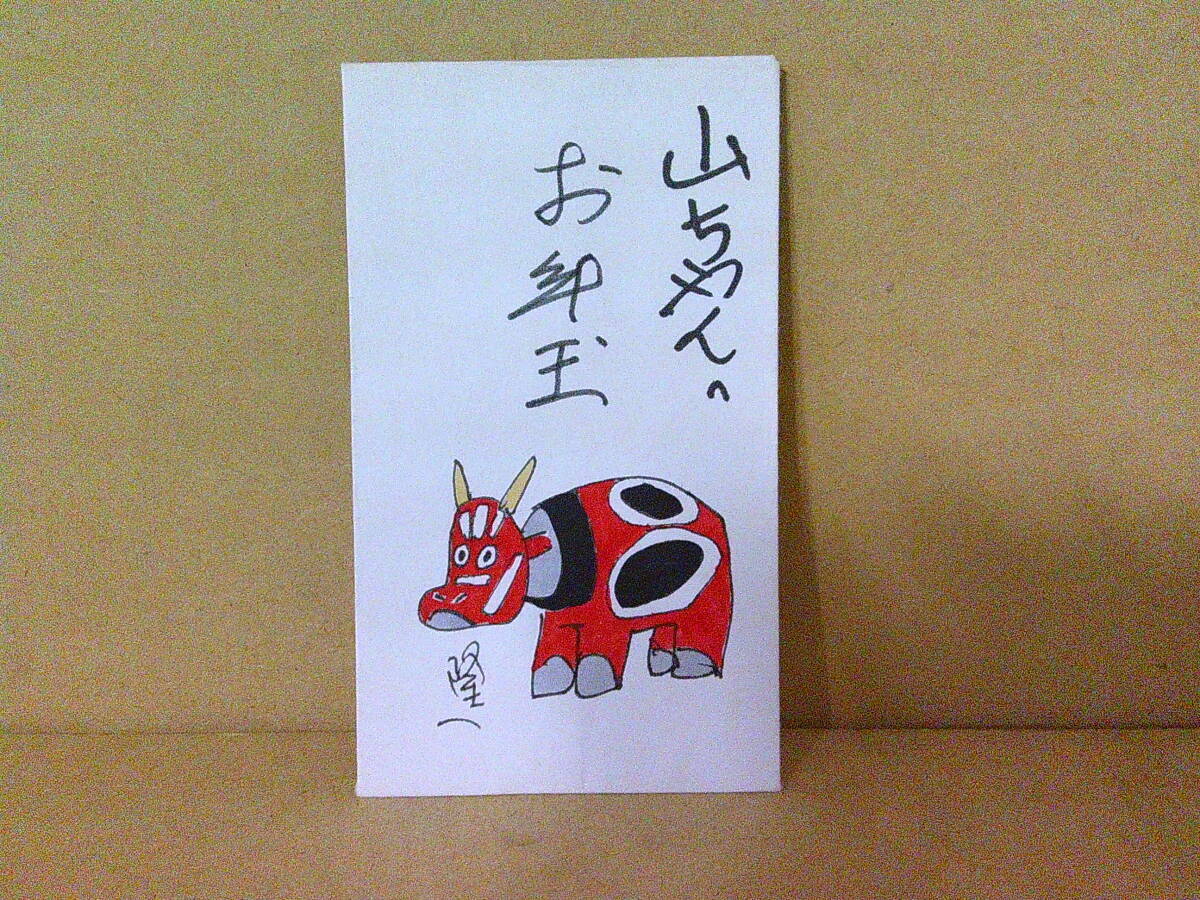 山ちゃんへ
お年玉
隆一